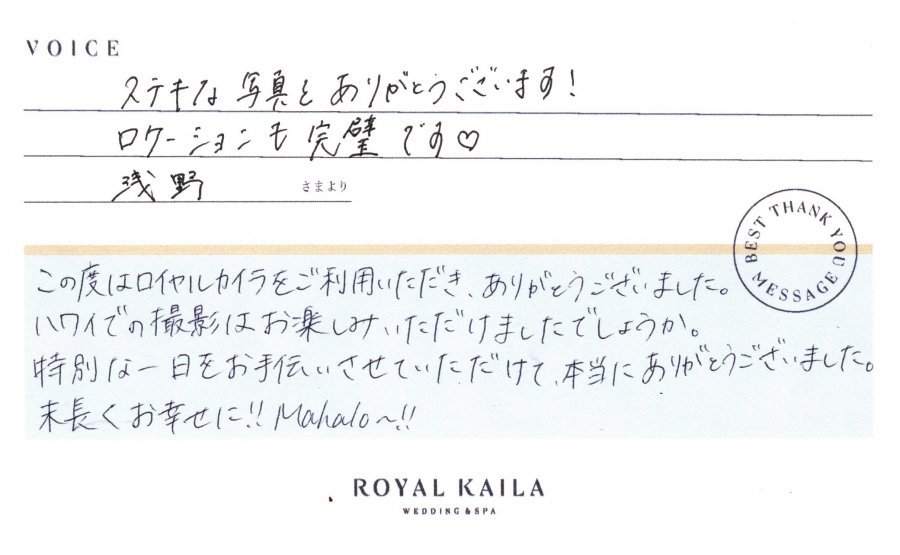 VOICE
ステキな写真をありがとうございます!
ロケーションも完璧です♡
浅野 さまより
BEST THANK YOU MESSAGE
この度はロイヤルカイラをご利用いただき、ありがとうございました。
ハワイでの撮影はお楽しみいただけましたでしょうか。
特別な一日をお手伝いさせていただけて、本当にありがとうございました。
末長くお幸せに!! Mahalo~!!
ROYAL KAILA
WEDDING & SPA